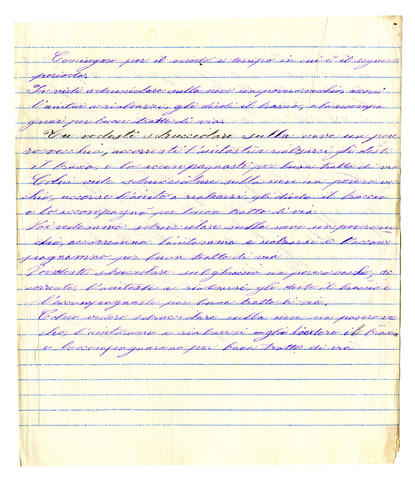 Coniugare per il modo e tempo in cui è il seguente
periodo.
Io vidi sdrucciolare sulla neve un povero vecchio, accorsi
l'aiutai a rialzarsi, gli diedi il braccio, e lo accompa
gnai per buon tratto di via.
Tu vedesti sdrucciolare sulla neve un pove
ro vecchio, accorresti l'aiutasti a rialzarsi gli desti
il braccio, e lo accompagnasti per buon tratto di via
Colui vide sdrucciolare sulla neve un povero vec
chio, accorse l'aiutò a rialzarsi gli diede il braccio
e lo accompagnò per buon tratto di via
Noi vedemmo sdrucciolare sulla neve un povero vec
chio, accorremmo l'aiutammo a rialzarsi e l'accom
pagnammo per buon tratto di via
Voi vedeste sdrucciolare sul ghiaccio un povero vecchio,
l'aiutaste a rialzarsi, gli deste il braccio e
l'accompagnaste per buon tratto di via.
Coloro videro sdrucciolare sulla neve un povero vec
chio, l'aiutarono a rialzarsi il braccio
e lo accompagnarono per buon tratto di via